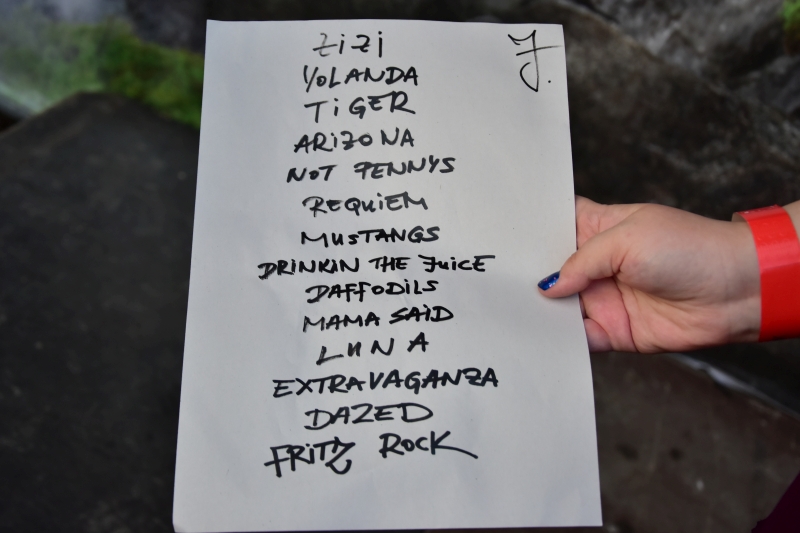 ZiZi
J.
YOLANDA
TiGER
ARiZONA
NOT PENNYS
REQUiEM
MUSTANGS
DRiNKiN THE JUiCE
DAFFODiLS
MAMA SAiD
LUNA
EXTRAVAGANZA
DAZED
FRiTZ ROCK